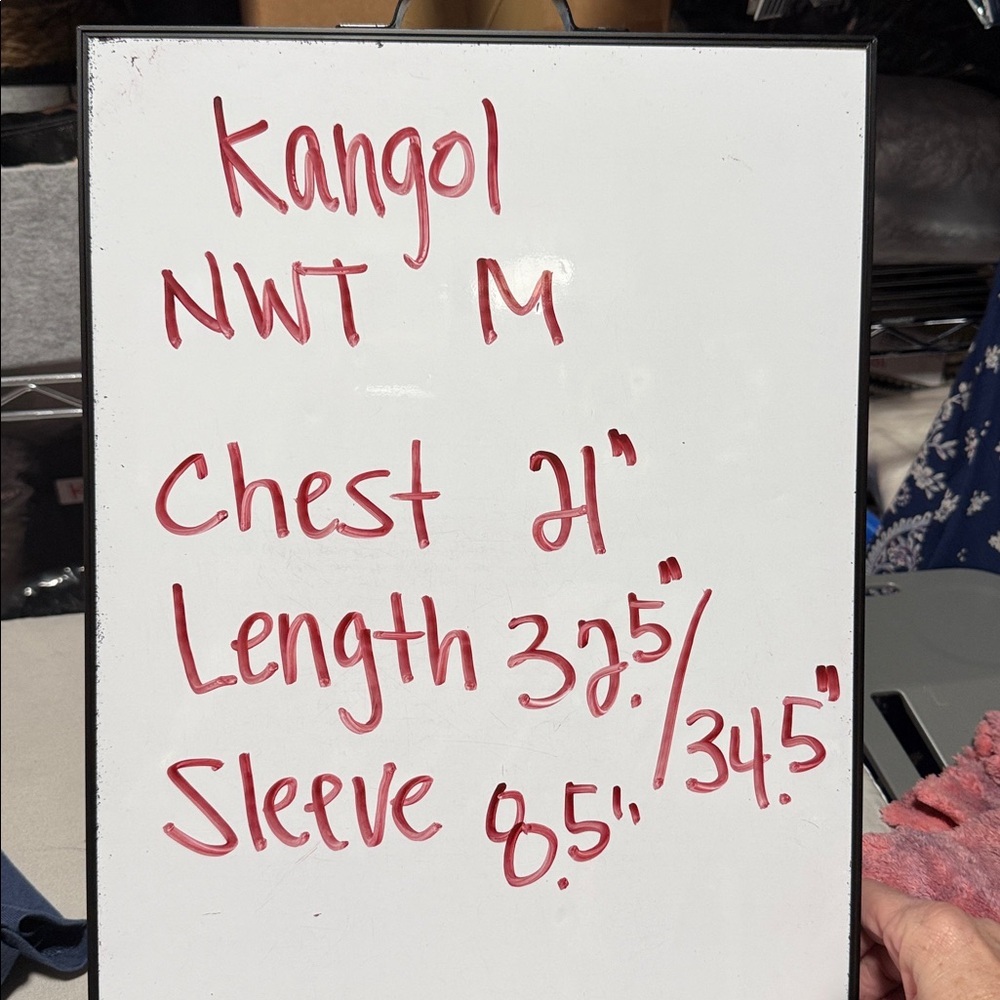 Kangol
NWT M
Chest 21"
Length 32.5"/34.5"
Sleeve 8.5"